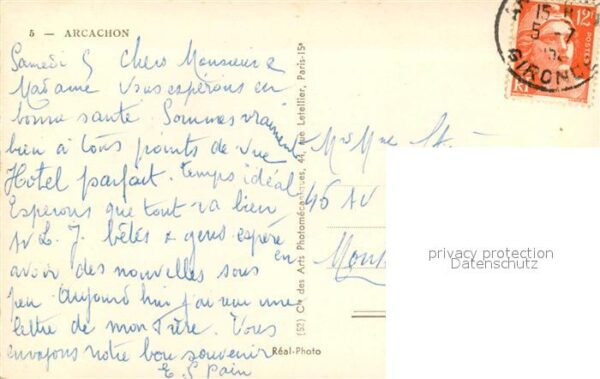 5 — ARCACHON
Samedi 5 Chers Monsieur &
Madame Vous espérons en
bonne santé. Sommes vraiment
bien à tous points de vue
Hotel parfait. temps idéal
Esperons que tout va bien
Av L. J. bêtes & gens espère
avoir des nouvelles sous en
peu. Aujourd hui j'ai reçu une
lettre de mon frère. Vous
envoyons notre bon souvenir
E S Pain
(52) Cie des Arts Photomécaniques, 44, rue Letellier, Paris-15e
Réal-Photo
Mr Mme St.
45 AV
12F
POSTES
RF
15-
5-7
GIRONDE
privacy protection
Datenschutz